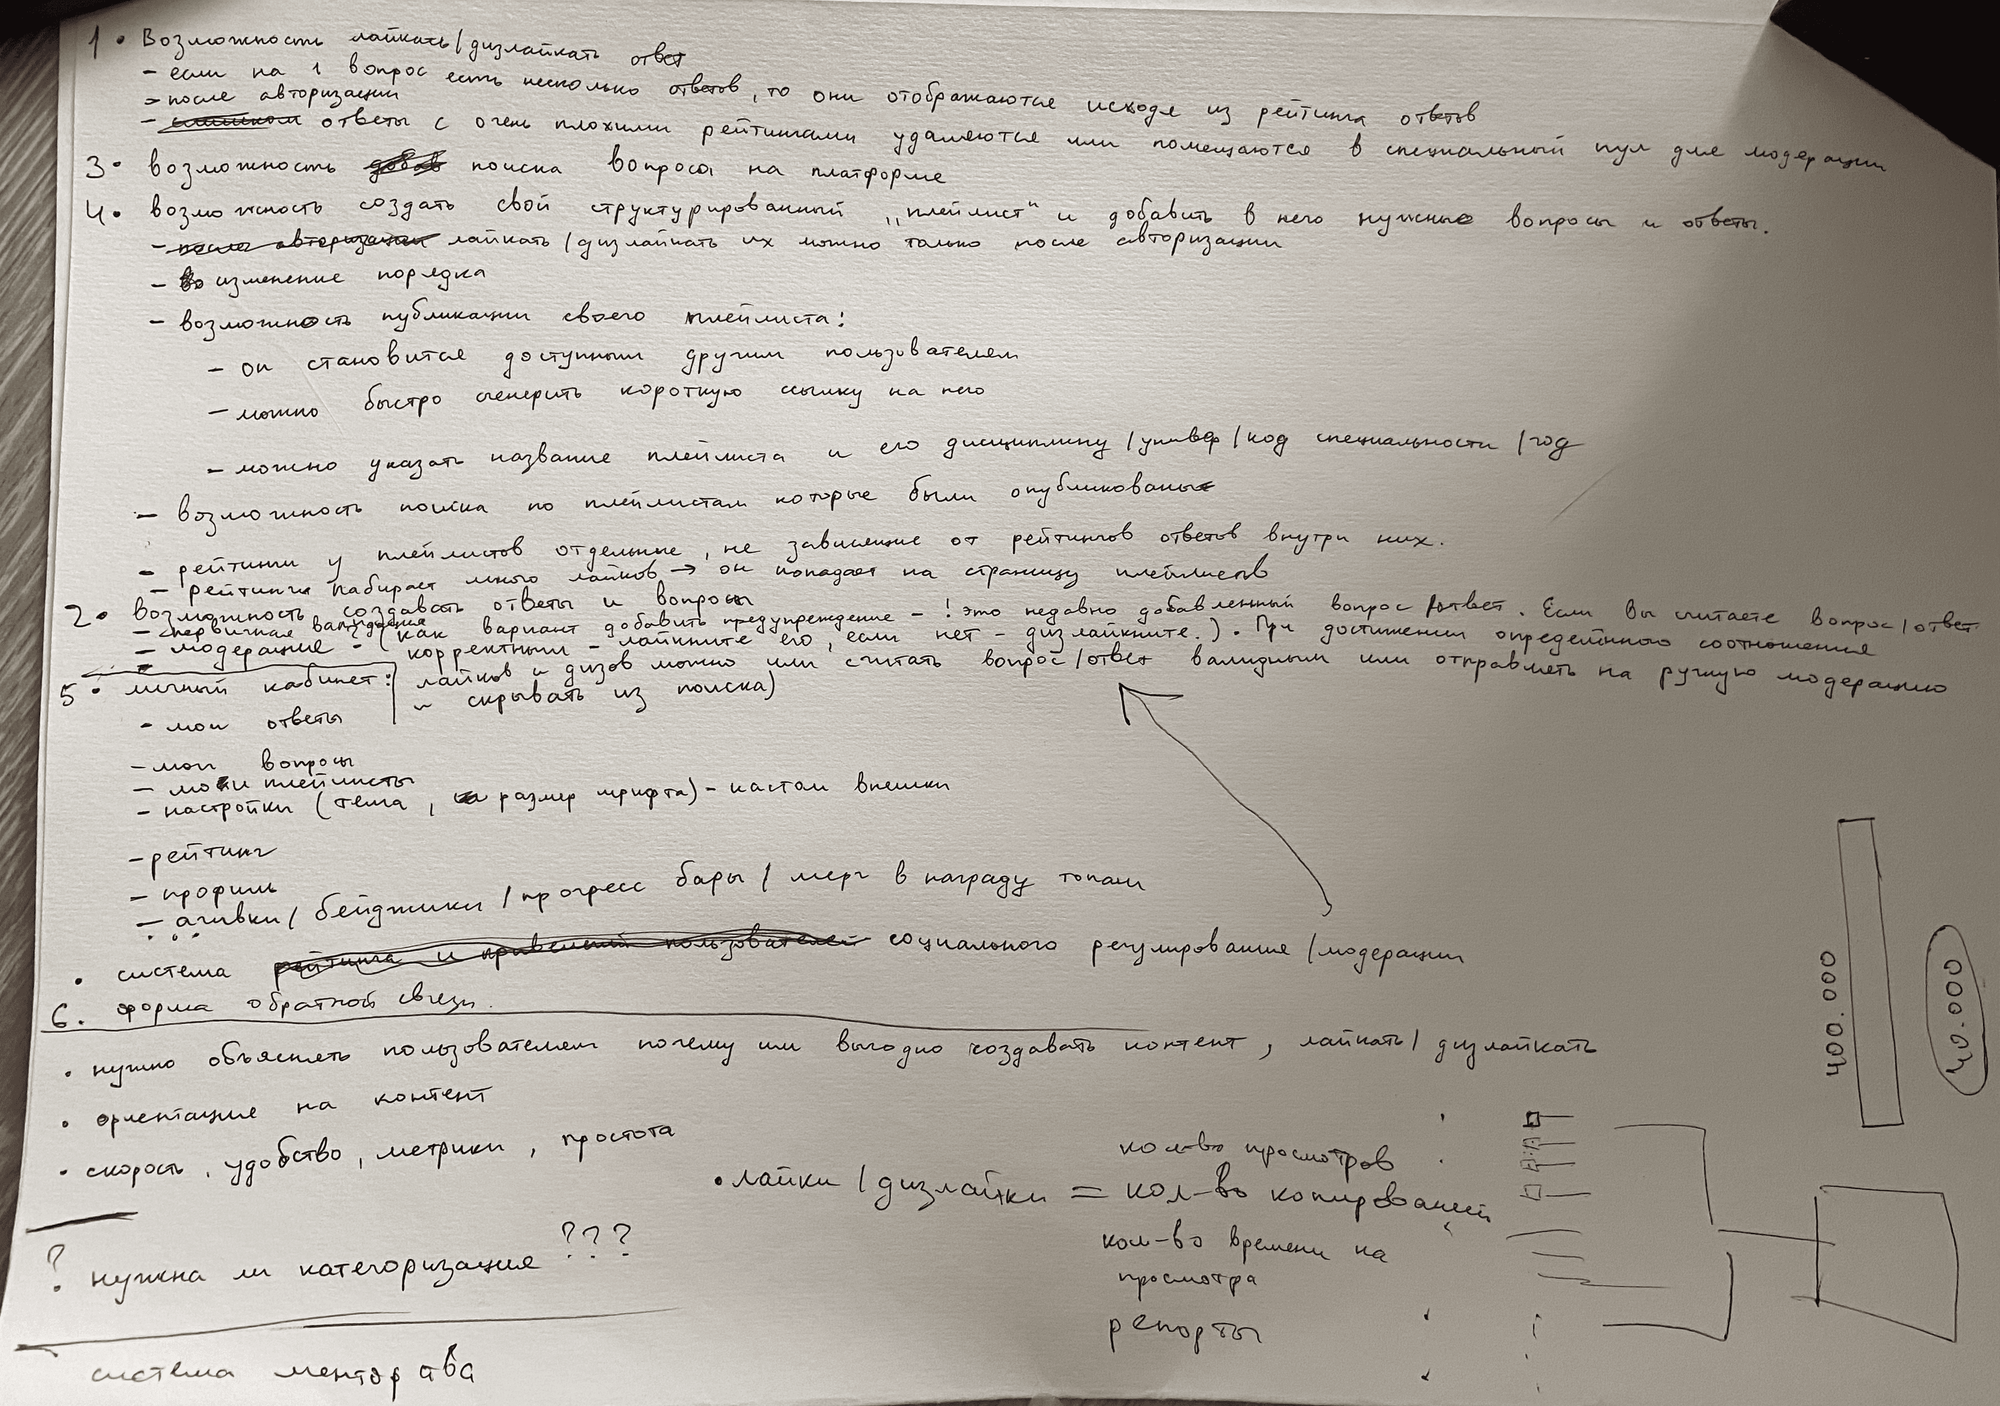 1. Возможность лайкать/дизлайкать ответ
- если на 1 вопрос есть несколько ответов, то они отображаются исходя из рейтинга ответов
- после авторизации
- ответы с очень плохими рейтингами удаляются или помещаются в специальный пул для модерации
3. возможность поиска вопроса на платформе
4. возможность создать свой структурированный „плейлист“ и добавить в него нужные вопросы и ответы.
- после авторизации лайкать/дизлайкать их можно только после авторизации
- изменение порядка
- возможность публикации своего плейлиста:
- он становится доступным другим пользователям
- можно быстро сгенерить короткую ссылку на него
- можно указать название плейлиста и его дисциплину/универ/код специальности/год
- возможность поиска по плейлистам которые были опубликованы
- рейтинги у плейлистов отдельные, не зависящие от рейтингов ответов внутри них.
- рейтинги набирает много лайков → он попадает на страницу плейлистов
2. возможность создавать ответы и вопросы
- первичная валидация
- модерация - (как вариант добавить предупреждение - ! это недавно добавленный вопрос/ответ. Если вы считаете вопрос/ответ
корректным - лайкните его, если нет - дизлайкните.). При достижении определённого соотношения
лайков и дизов можно или считать вопрос/ответ валидным или отправлять на ручную модерацию
и скрывать из поиска)
5. личный кабинет:
- мои ответы
- мои вопросы
- мои плейлисты
- настройки (тема, размер шрифта) - кастом внешки
- рейтинг
- профиль
- ачивки/бейджики/прогресс бары/мерч в награду топам
. . .
• система рейтинга и привелегий пользователей социального регулирования/модерации
6. форма обратной связи.
• нужно объяснять пользователям почему им выгодно создавать контент, лайкать/дизлайкать
• ориентация на контент
• скорость, удобство, метрики, простота
кол-во просмотров
• лайки/дизлайки = кол-во копирований
кол-во времени на
просмотра
репорты
? нужна ли категоризация ???
система менторства
400.000
40.000